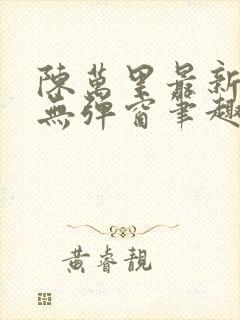 陳萬里最新
無彈窗筆趣
黃睿靚